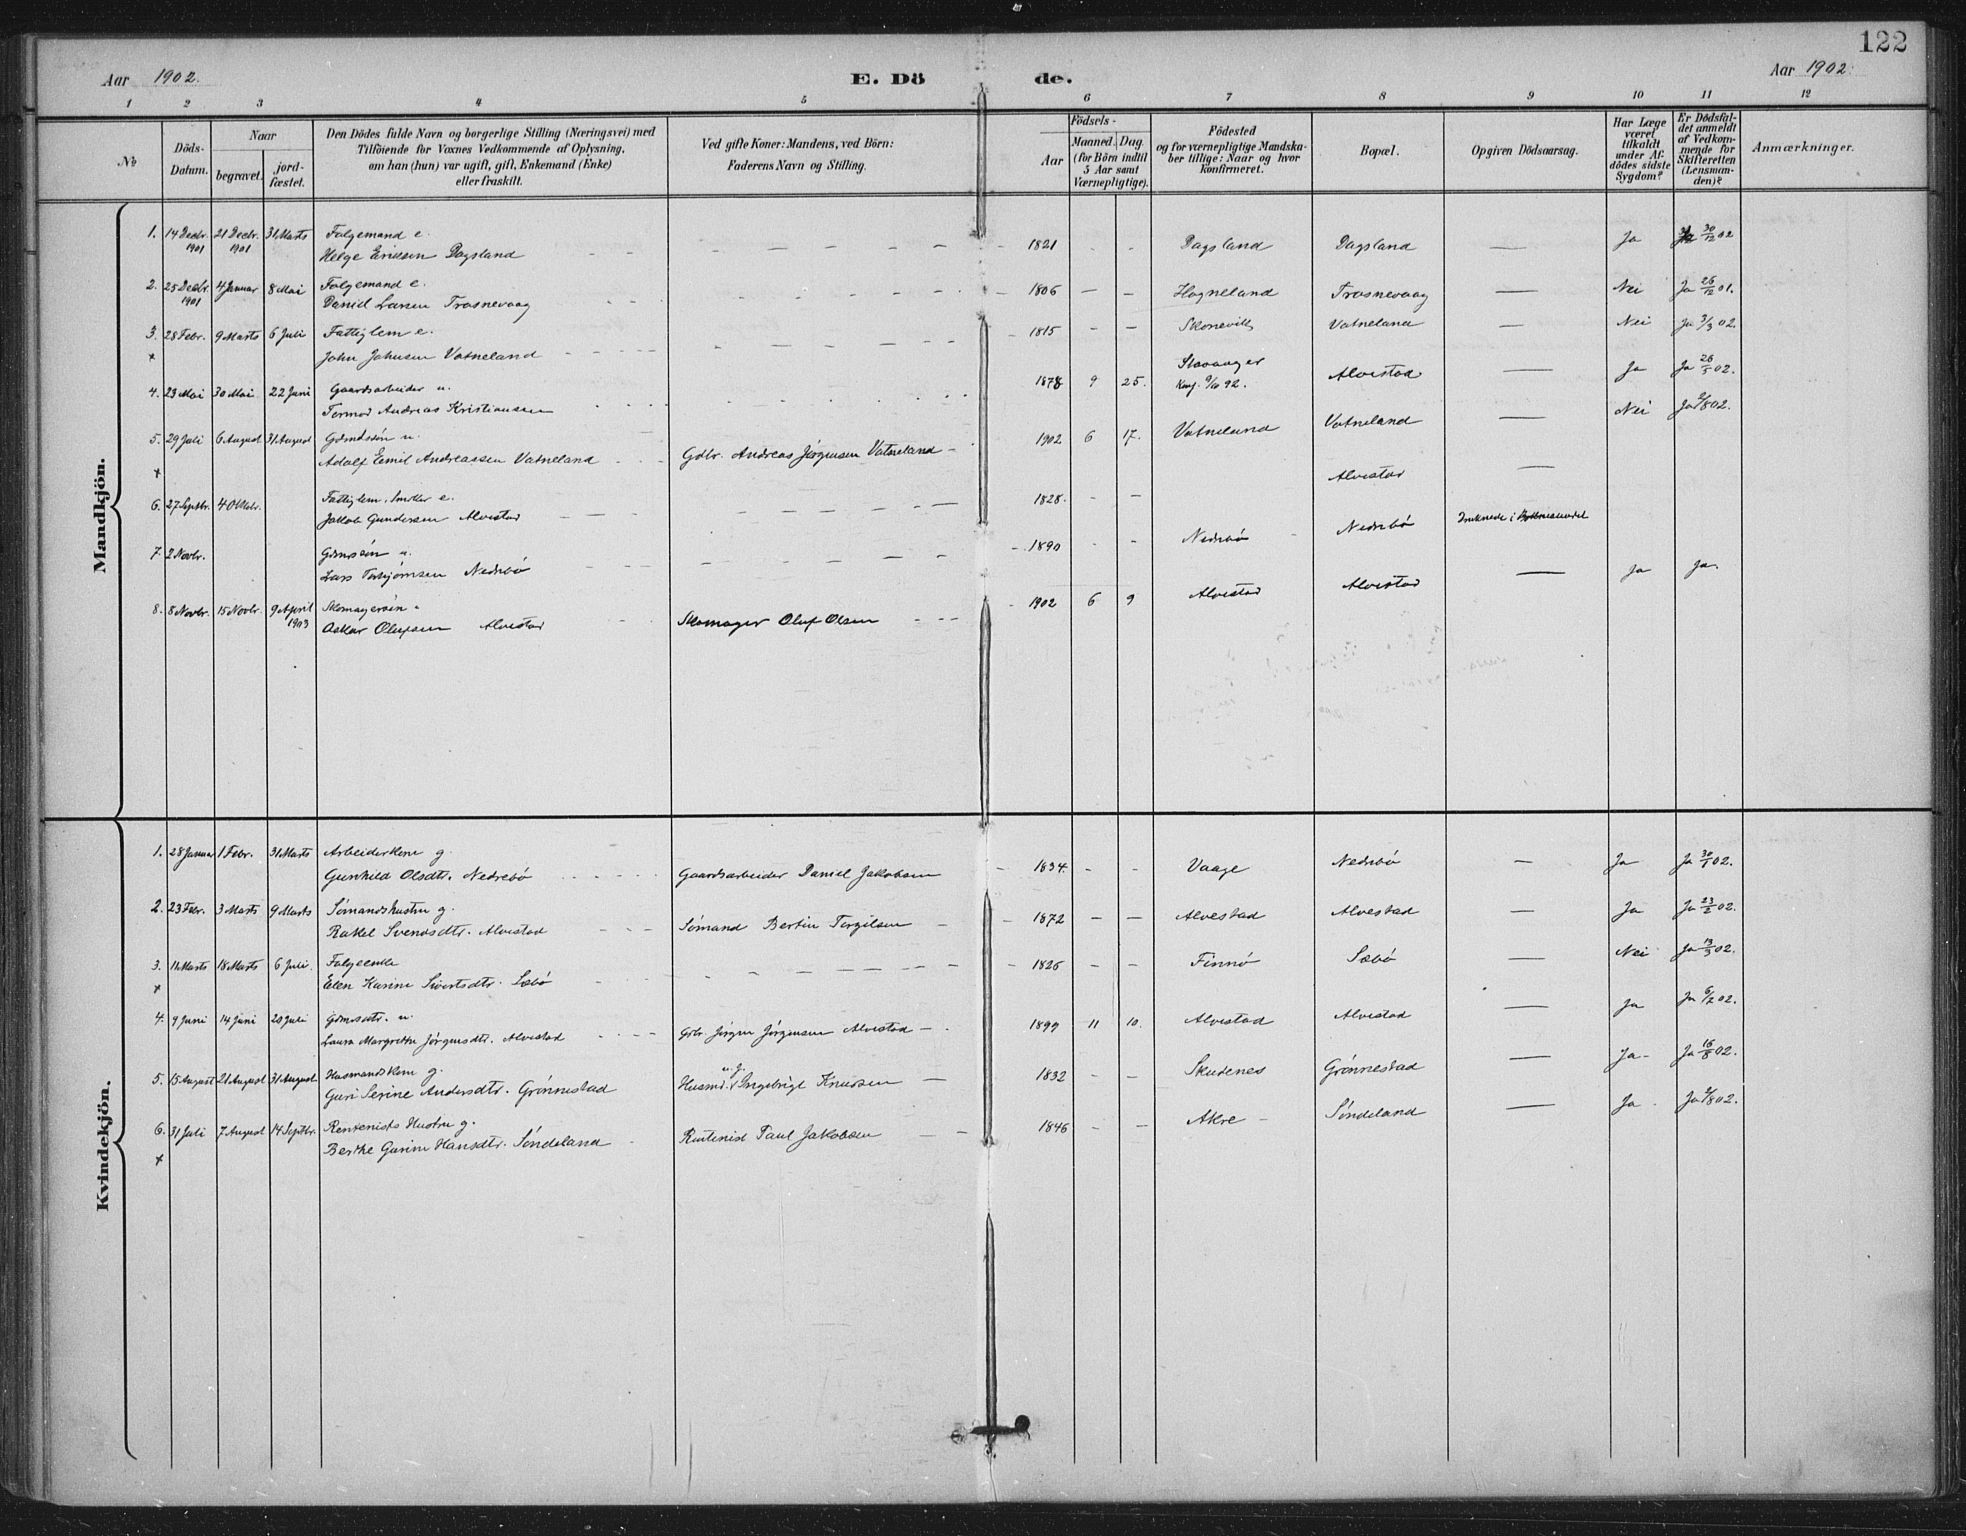 122
Aar 1902. E. Dö de. Aar 1902.
1 2 3 4 5 6 7 8 9 10 11 12
No
Döds-Datum.
Naar
begravet.
jord-fæstet.
Den Dödes fulde Navn og borgerlige Stilling (Næringsvei) med
Tilföiende for Voxnes Vedkommende af Oplysning,
om han (hun) var ugift, gift, Enkemand (Enke)
eller fraskilt.
Ved gifte Koner: Mandens, ved Börn:
Faderens Navn og Stilling.
Födsels-
Aar
Maaned. Dag.
(for Börn indtil
5 Aar samt
Værnepligtige).
Födested
og for værnepligtige Mandska-
ber tillige: Naar og hvor
konfirmeret.
Bopæl.
Opgiven Dödsaarsag.
Har Læge
været
tilkaldt
under Af-
dödes sidste
Sygdom?
Er Dödsfal-
det anmeldt
af Vedkom-
mende for
Skifteretten
(Lensman-
den)?
Anmærkninger.
Mandkjön.
1. 14 Decbr. 1901 21 Decbr. 1901 31 Marts Folgemand e. 1821 - - Dagsland Dagsland — Ja 30/12 02
Helge Ericksen Dagsland
2. 25 Decbr. 1901 4 Januar 8 Mai Folgemand e. 1806 — — Hogneland Trosnevaag — Nei Ja 26/12 01.
Daniel Larsen Trosnevaag
3. 28 Febr. 9 Marts 6 Juli Fattiglem e. 1815 - — Skonevik Vatneland — Nei Ja 3/3 02.
x John Johnsen Vatneland
4. 23 Mai 30 Mai 22 Juni Gaardsarbeider u. 1878 9 25. Stavanger Alvestad — Ja Ja 26/5 02.
Tormod Andreas Kristiansen Konf. 9/10 92.
5. 29 Juli 6 August 31 August Gdmdssön u. 1902 6 17. Vatneland Vatneland — Nei Ja 2/8 02.
x Adolf Emil Andreassen Vatneland Gdbr. Andreas Jörgensen Vatneland
6. 27 Septbr. 4 Oktobr. Fattiglem e. 1828. - — Alvestad —
Jakob Gundersen Alvestad
7. 2 Novbr. Gdmdssön u. 1890 - - Nedrebö Nedrebö Druknede i
Lars Torbjörnsen Nedrebö
8. 8 Novbr. 15 Novbr. 9 April 1903 Skomagersön 1902 6 9 Alvestad Alvestad — Ja Ja.
Oskar Olufsen Alvestad Skomager Oluf Olsen
Kvindekjön.
1. 28 Januar 1 Febr. 31 Marts Arbeiderkone g. 1834 - - Vaage Nedrebö — Ja Ja 30/1 02.
Gunhild Olsdtr. Nedrebö Gaardsarbeider Daniel Jakobsen
2. 23 Febr. 3 Marts 9 Marts Sømandshustru g. 1872 — — Alvestad Alvestad — Ja Ja 23/2 02.
Rakel Svendsdtr. Alvestad Sømand Bertin Torgilsen
3. 11 Marts 18 Marts 6 Juli. Folgeenke 1826 - - Finnö Sæbö — Nei Ja 13/3 02.
x Elen Karine Sivertsdtr. Sæbö
4. 9 Juni 14 Juni 20 Juli Gdmdsdtr. u. 1899 11 10. Alvestad Alvestad — Ja Ja 6/7 02.
Laura Margrethe Jörgensdtr. Alvestad Gdbr. Jörgen Jörgensen Alvestad
5. 15 August 21 August 31 August Husmandskone g. 1832 - - Skudenes Grønnestad — Ja Ja 16/8 02.
Guri Serine Andersdtr. Grønnestad Husmd. Ingebrigt Knudsen
6. 31 Juli 7 August 14 Septbr. Rentenists Hustru g. 1846 - - Akre Søndeland — Ja Ja 2/8 02.
x Berthe Gurine Hansdtr. Søndeland Rentenist Paul Jakobsen